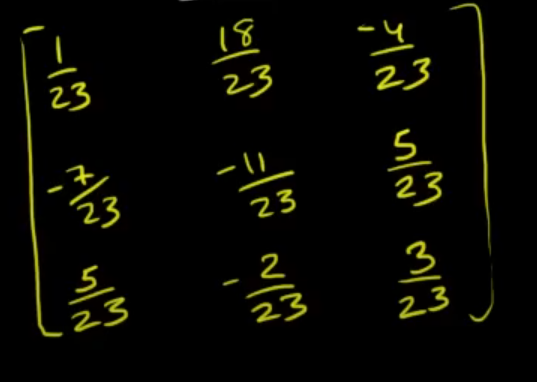 1/23 18/23 -4/23
-7/23 -11/23 5/23
5/23 -2/23 3/23